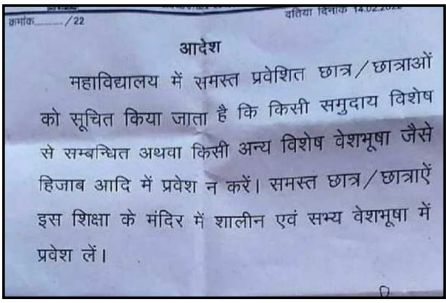 क्रमांक........../22 दतिया दिनांक 14.02.2022
आदेश
महाविद्यालय में समस्त प्रवेशित छात्र/छात्राओं
को सूचित किया जाता है कि किसी समुदाय विशेष
से सम्बन्धित अथवा किसी अन्य विशेष वेशभूषा जैसे
हिजाब आदि में प्रवेश न करें। समस्त छात्र/छात्राऐं
इस शिक्षा के मंदिर में शालीन एवं सभ्य वेशभूषा में
प्रवेश लें।